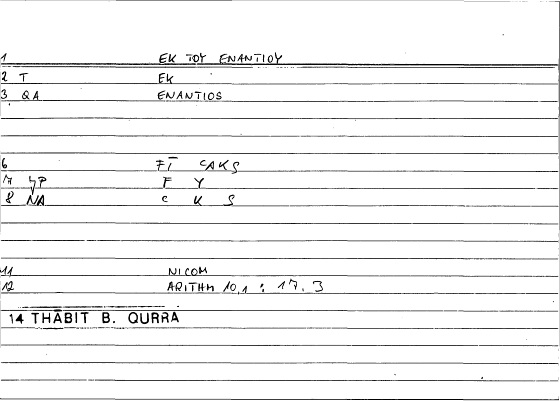 1 EK TOY ENANTIOY
2 T EK
3 QA ENANTIOS
6 FĪ CAKS
7 SP F Y
8 NA C K S
11 NICOM
12 ARITHM 10,1 : 17. 3
14 THĀBIT B. QURRA